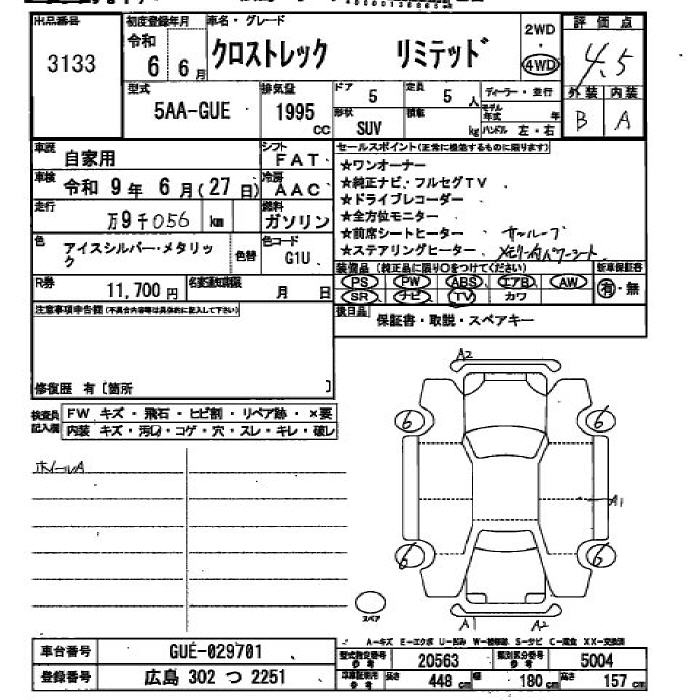 出品番号 初度登録年月 車名・グレード 2WD 評価点
3133 令和 6 6月 クロストレック リミテッド ・ 4WD 4.5
型式 排気量 ドア 定員 ディーラー・並行 外装 内装
5AA-GUE 1995 cc 5 5人 モデル年式 年 B A
形状 積載 ハンドル 左・右
SUV kg
車歴 自家用 シフト FAT セールスポイント(正常に機能するものに限ります)
★ワンオーナー
車検 令和 9年 6月(27日) 冷房 AAC ★純正ナビ・フルセグTV
★ドライブレコーダー
走行 万9千056 km 燃料 ガソリン ★全方位モニター
★前席シートヒーター サンルーフ
色 アイスシルバー・メタリック 色替 色コード G1U ★ステアリングヒーター メモリー付パワーシート
装備品(純正品に限り○をつけてください) 新車保証書
R券 11,700円 名変通知期限 月 日 PS PW ABS エアB AW 有・無
SR ナビ TV カワ
注意事項申告欄(不具合内容等は具体的に記入して下さい) 後日品 保証書・取説・スペアキー
修復歴 有〔箇所 〕
検査員記入欄 FW キズ・飛石・ヒビ割・リペア跡・×要
内装 キズ・汚れ・コゲ・穴・スレ・キレ・破レ
ホイールA
A2
6 6
A1
6 6
スペア
A1 A2
A-キズ E-エクボ U-凹み W-補修跡 S-サビ C-腐食 XX-交換済
車台番号 GUE-029701 型式指定番号 参考 20563 類別区分番号 参考 5004
登録番号 広島 302 つ 2251 参考 長さ 448cm 幅 180cm 高さ 157cm